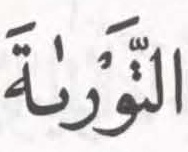 التَّوْرٰىةَ